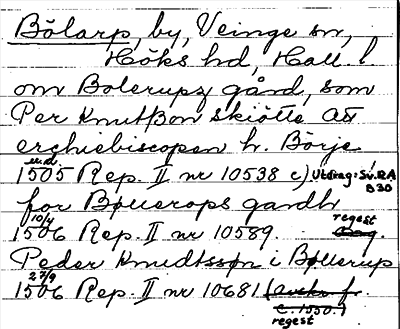 Bölarp, by, Veinge sn,
Höks hd, Hall. l.
om Bolerupz gård, som
Per Knutßon skiötte aff
erchiebiscopen h. Börje
u.d.
1505 Rep. II nr 10538 c) Utdrag: Sv. RA
B 30
for Bøllerops gardh
10/4 regest
1506 Rep. II nr 10589
Peder Knudtssøn i Bøllerup
27/9
1506 Rep. II nr 10681 (avskr. f.
c. 1550.)
regest